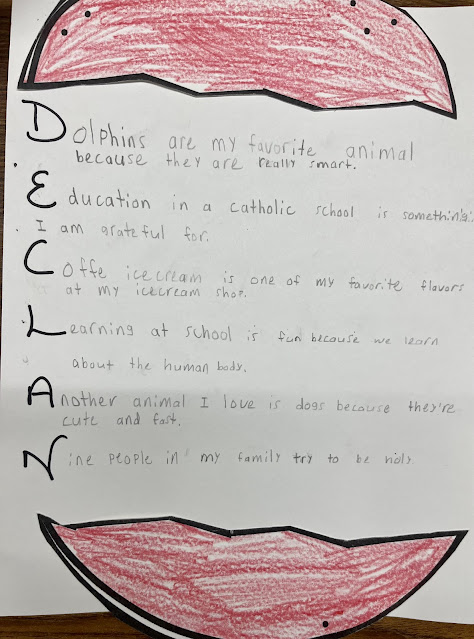 Dolphins are my favorite animal
because they are really smart.
Education in a catholic school is something
I am grateful for.
Coffe icecream is one of my favorite flavors
at my icecream shop.
Learning at school is fun because we learn
about the human body.
Another animal I love is dogs because they're
cute and fast.
Nine people in my family try to be holy